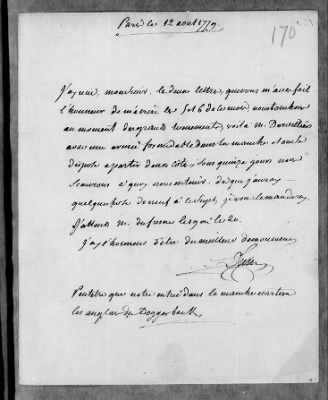 Paris le 12 aout 1779.
170
J'ay reçu, monsieur, les deux lettres, que vous m'avez fait
l'honneur de m'écrire les 5 et 6 de ce mois, nous touchons
au moment des grands evenements, voila M. Dorvilliers
avec une armée formidable dans la manche et on le
dispose a partir de nos côtes, sous quinze jours nous
scaurons a quoy nous en tenir. des que j'auray
quelque chose de neuf à ce sujet, je vous le manderay
J'attends M. du fresne les 19 ou le 20.
J'ay l'honneur d'être du meilleur de mon coeur
Peutetre que notre entrée dans la manche ecartera
les anglais du Dogger bank